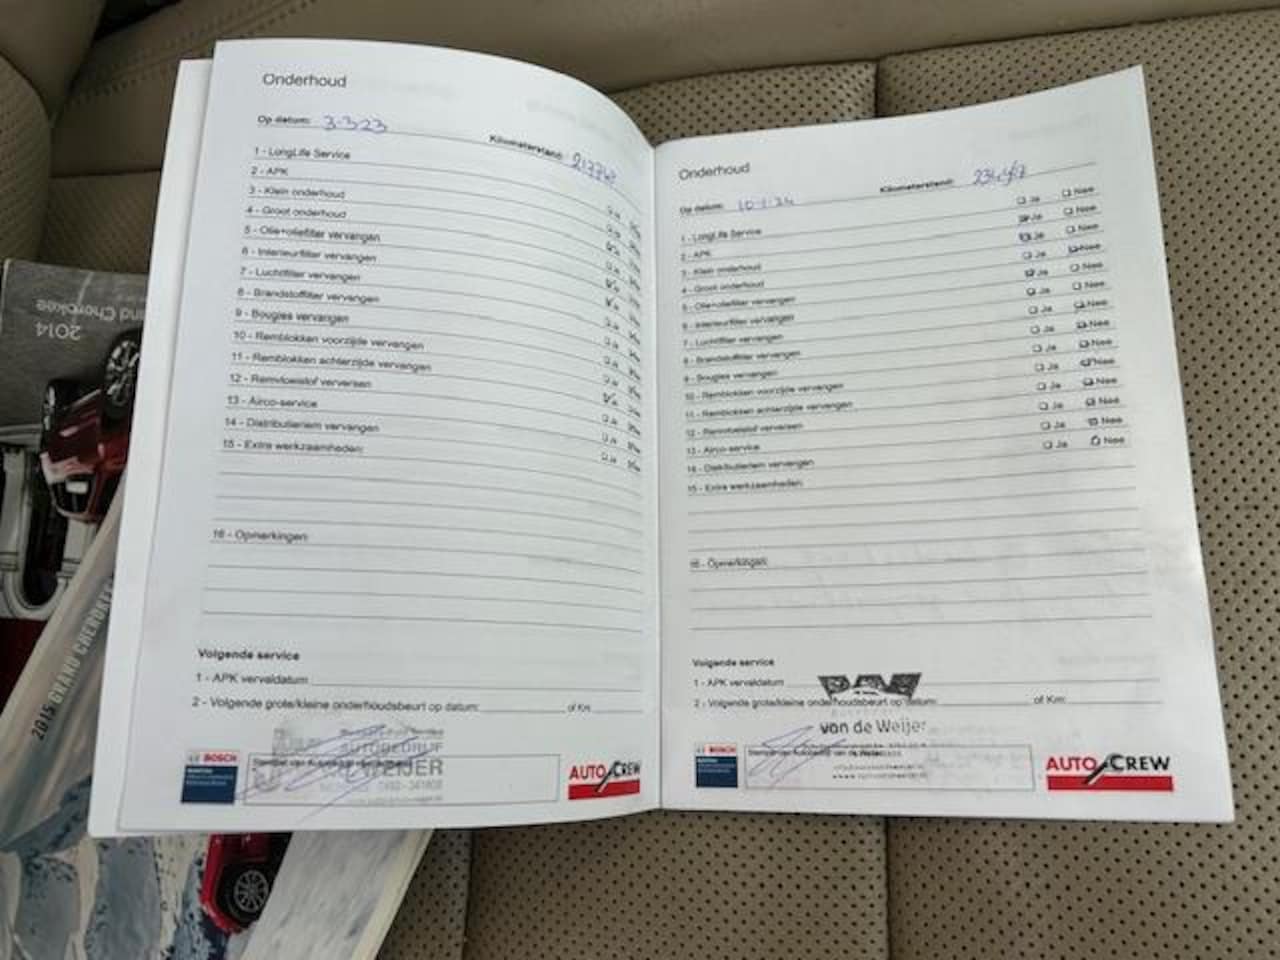 Onderhoud
Op datum: 3-3-23 Kilometerstand:
1 - LongLife Service
2 - APK
3 - Klein onderhoud
4 - Groot onderhoud
5 - Olie+oliefilter vervangen
6 - Interieurfilter vervangen
7 - Luchtfilter vervangen
8 - Brandstoffilter vervangen
9 - Bougies vervangen
10 - Remblokken voorzijde vervangen
11 - Remblokken achterzijde vervangen
12 - Remvloeistof verversen
13 - Airco-service
14 - Distributieriem vervangen
15 - Extra werkzaamheden:
16 - Opmerkingen:
Volgende service
1 - APK vervaldatum
2 - Volgende grote/kleine onderhoudsbeurt op datum: of Km:
BOSCH
AUTOBEDRIJF
WEIJER
AUTO CREW
Onderhoud
Op datum: Kilometerstand:
1 - LongLife Service Ja Nee
2 - APK Ja Nee
3 - Klein onderhoud Ja Nee
4 - Groot onderhoud Ja Nee
5 - Olie+oliefilter vervangen Ja Nee
6 - Interieurfilter vervangen Ja Nee
7 - Luchtfilter vervangen Ja Nee
8 - Brandstoffilter vervangen Ja Nee
9 - Bougies vervangen Ja Nee
10 - Remblokken voorzijde vervangen Ja Nee
11 - Remblokken achterzijde vervangen Ja Nee
12 - Remvloeistof verversen Ja Nee
13 - Airco-service Ja Nee
14 - Distributieriem vervangen Ja Nee
15 - Extra werkzaamheden:
16 - Opmerkingen:
Volgende service
1 - APK vervaldatum
2 - Volgende grote/kleine onderhoudsbeurt op datum: of Km:
van de Weijer
BOSCH
Stempel van Autobedrijf van de Weijer
AUTO CREW
2014
Grand Cherokee
2015 GRAND CHEROKEE